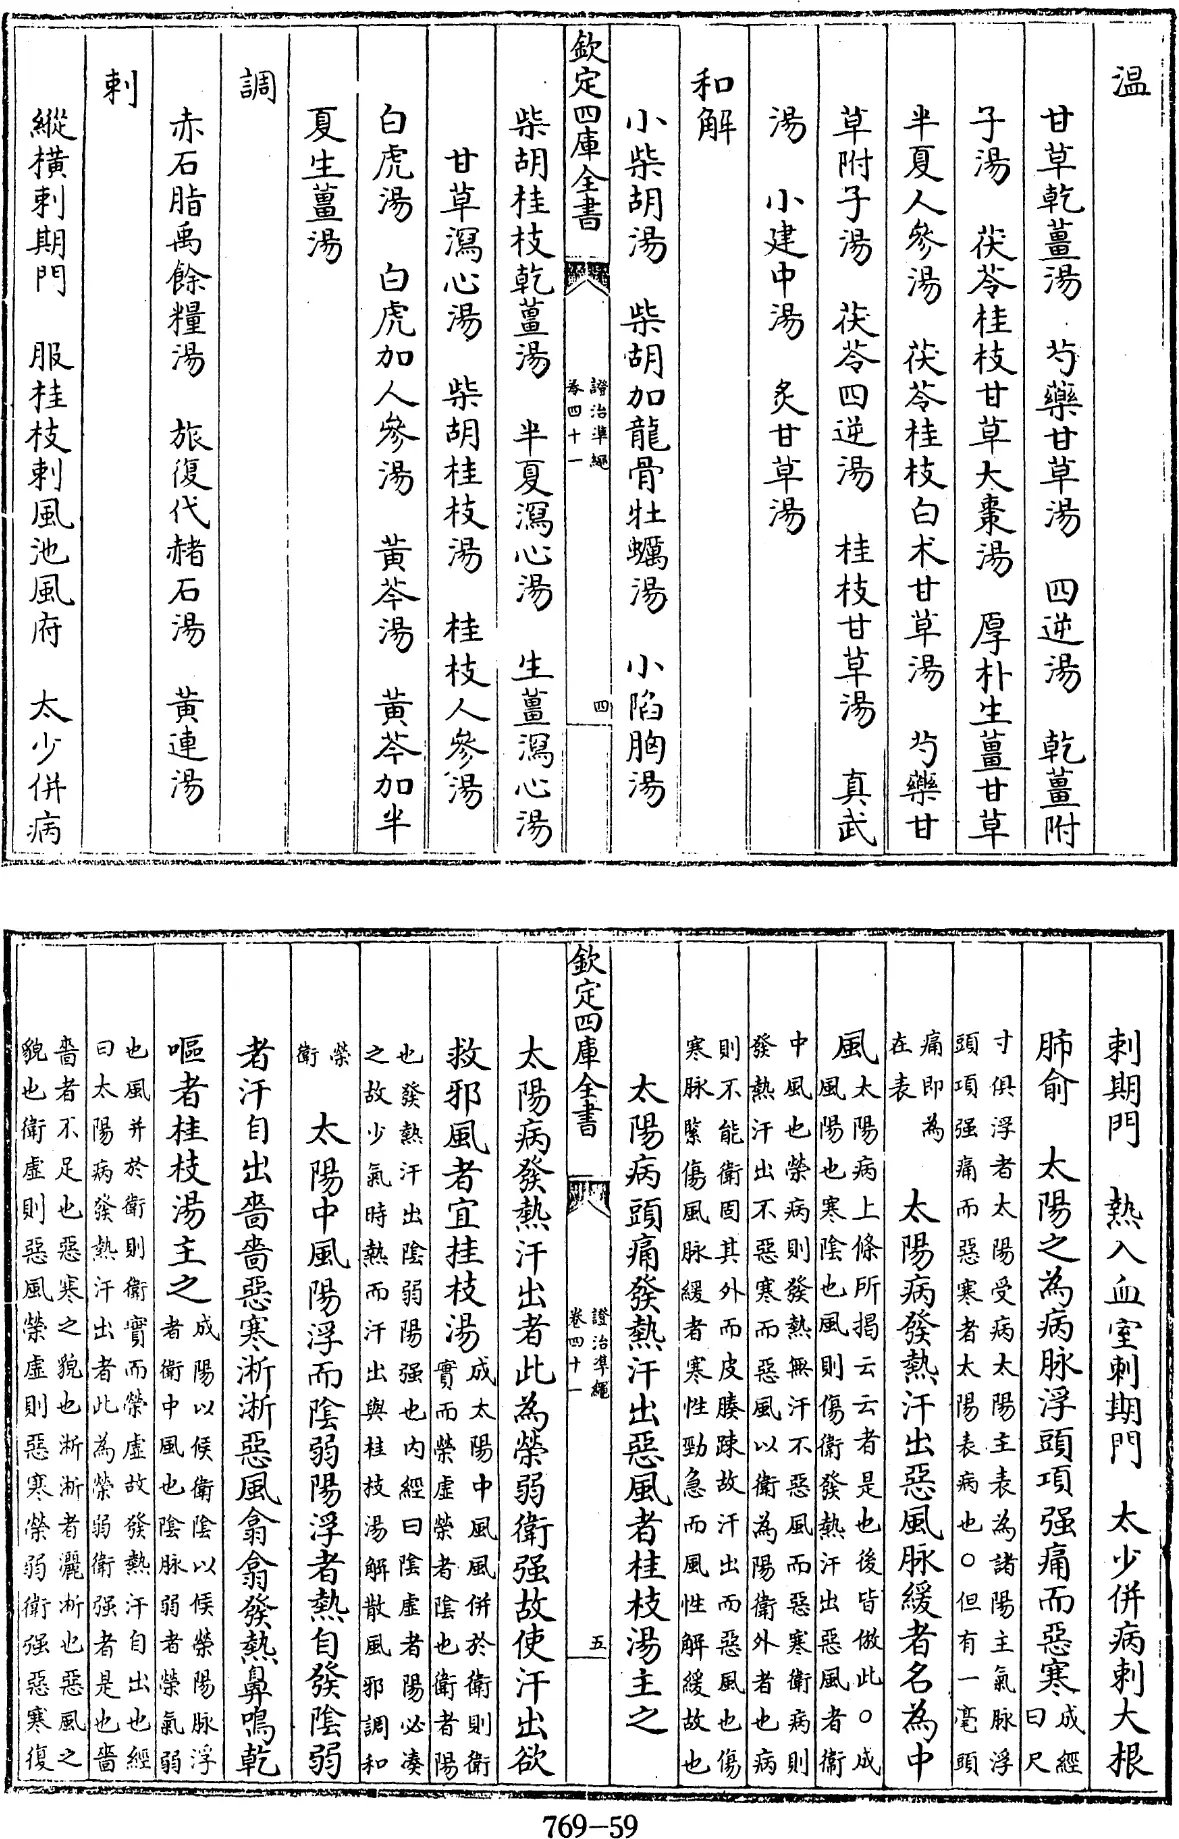 温
甘草乾薑湯　芍藥甘草湯　四逆湯　乾薑附
子湯　茯苓桂枝甘草大棗湯　厚朴生薑甘草
半夏人參湯　茯苓桂枝白术甘草湯　芍藥甘
草附子湯　茯苓四逆湯　桂枝甘草湯　真武
湯　小建中湯　炙甘草湯
和解
小柴胡湯　柴胡加龍骨牡蠣湯　小陷胸湯
欽定四庫全書
證治準繩
卷四十一
四
柴胡桂枝乾薑湯　半夏瀉心湯　生薑瀉心湯
甘草瀉心湯　柴胡桂枝湯　桂枝人參湯
白虎湯　白虎加人參湯　黃芩湯　黃芩加半
夏生薑湯
調
赤石脂禹餘糧湯　旅復代赭石湯　黃連湯
刺
縱橫刺期門　服桂枝刺風池風府　太少併病
刺期門　熱入血室刺期門　太少併病刺大根
肺俞　太陽之為病脉浮頭項强痛而惡寒成經
曰尺
寸俱浮者太陽受病太陽主表為諸陽主氣脉浮
頭項强痛而惡寒者太陽表病也○但有一毫頭
痛即為
在表
太陽病發熱汗出惡風脉緩者名為中
風太陽病上條所揭云云者是也後皆倣此○成
風陽也寒陰也風則傷衛發熱汗出惡風者衛
中風也榮病則發熱無汗不惡風而惡寒衛病則
發熱汗出不惡寒而惡風以衛為陽衛外者也病
則不能衛固其外而皮腠踈故汗出而惡風也傷
寒脉緊傷風脉緩者寒性勁急而風性解緩故也
太陽病頭痛發熱汗出惡風者桂枝湯主之
欽定四庫全書
證治準繩
卷四十一
五
太陽病發熱汗出者此為榮弱衛强故使汗出欲
救邪風者宜桂枝湯成太陽中風風併於衛則衛
實而榮虚榮者陰也衛者陽
也發熱汗出陰弱陽强也内經曰陰虚者陽必湊
之故少氣時熱而汗出與桂枝湯解散風邪調和
榮
衛
太陽中風陽浮而陰弱陽浮者熱自發陰弱
者汗自出嗇嗇惡寒淅淅惡風翕翕發熱鼻鳴乾
嘔者桂枝湯主之成陽以候衛陰以候榮陽脉浮
者衛中風也陰脉弱者榮氣弱
也風并於衛則衛實而榮虚故發熱汗自出也經
曰太陽病發熱汗出者此為榮弱衛强者是也嗇
嗇者不足也惡寒之貌也淅淅者灑淅也惡風之
貌也衛虚則惡風榮虚則惡寒榮弱衛强惡寒復
769-59